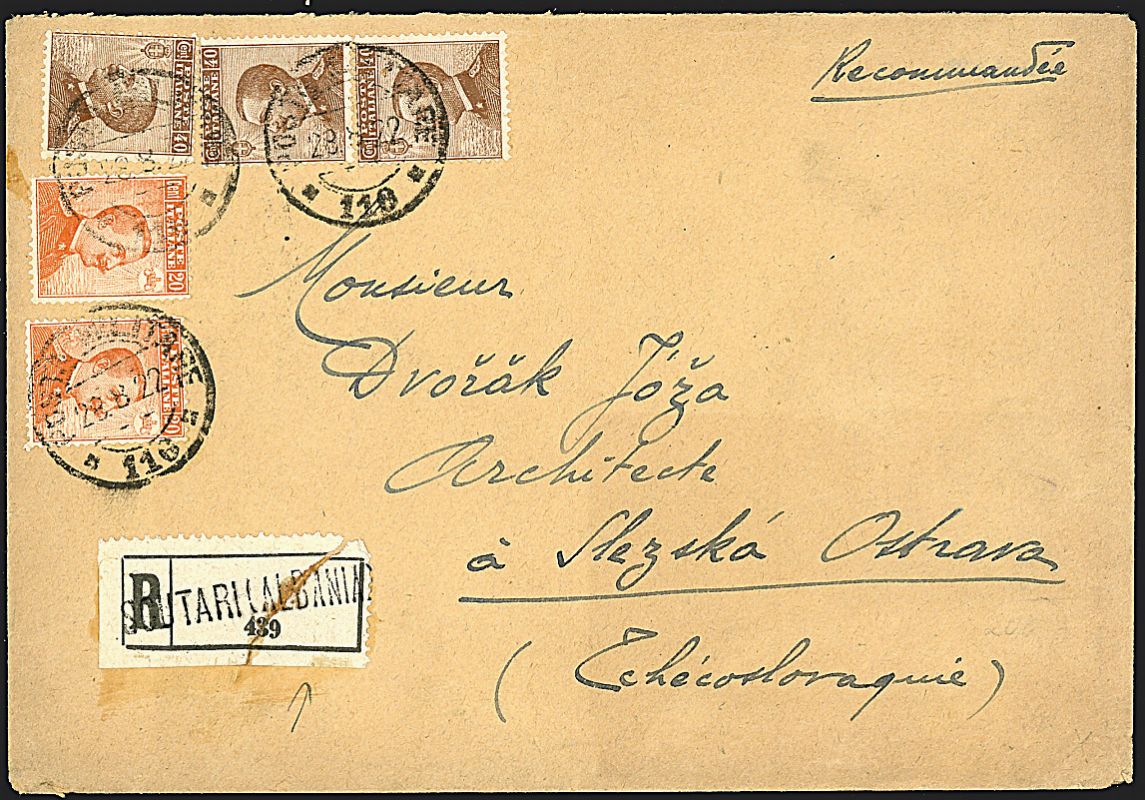 Recommandée
Cent 40 POSTE ITALIANE
40 POSTE ITALIANE Cent
40 POSTE ITALIANE Cent
POSTA MILITARE
28.8.22
116
Cent POSTE ITALIANE 20
POSTA MILITARE
28.8.22
116
Monsieur
Dvořák Jóža
Architecte
à Slezská Ostrava
(Tchécoslovaquie)
R SCUTARI (ALBANIA)
439